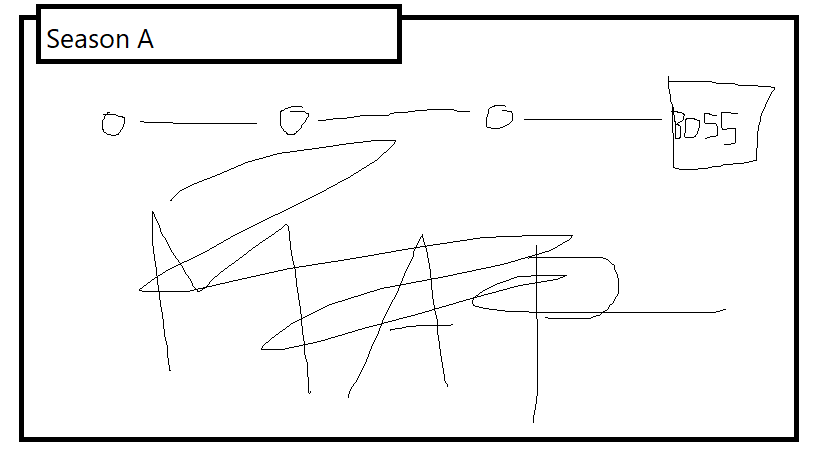 Season A
BOSS
MAP